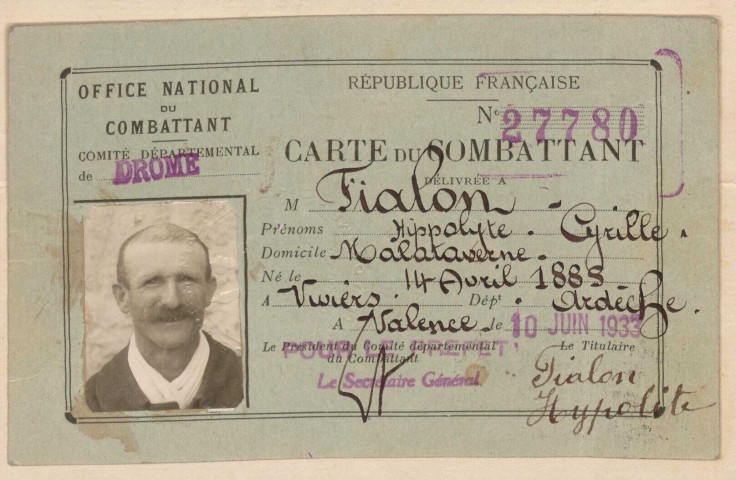 OFFICE NATIONAL
DU
COMBATTANT
COMITÉ DÉPARTEMENTAL
de DROME
RÉPUBLIQUE FRANÇAISE
N° 27780
CARTE DU COMBATTANT
DÉLIVRÉE A
M Fialon
Prénoms Hippolyte. Cyrille.
Domicile Malataverne.
Né le 14 Avril 1885
A Viviers. Dépt. Ardèche.
A Valence, le 10 JUIN 1933
Le Président du Comité départemental
du Combattant
POUR LE PRÉFET:
Le Secrétaire Général
Le Titulaire
Fialon
Hypolite